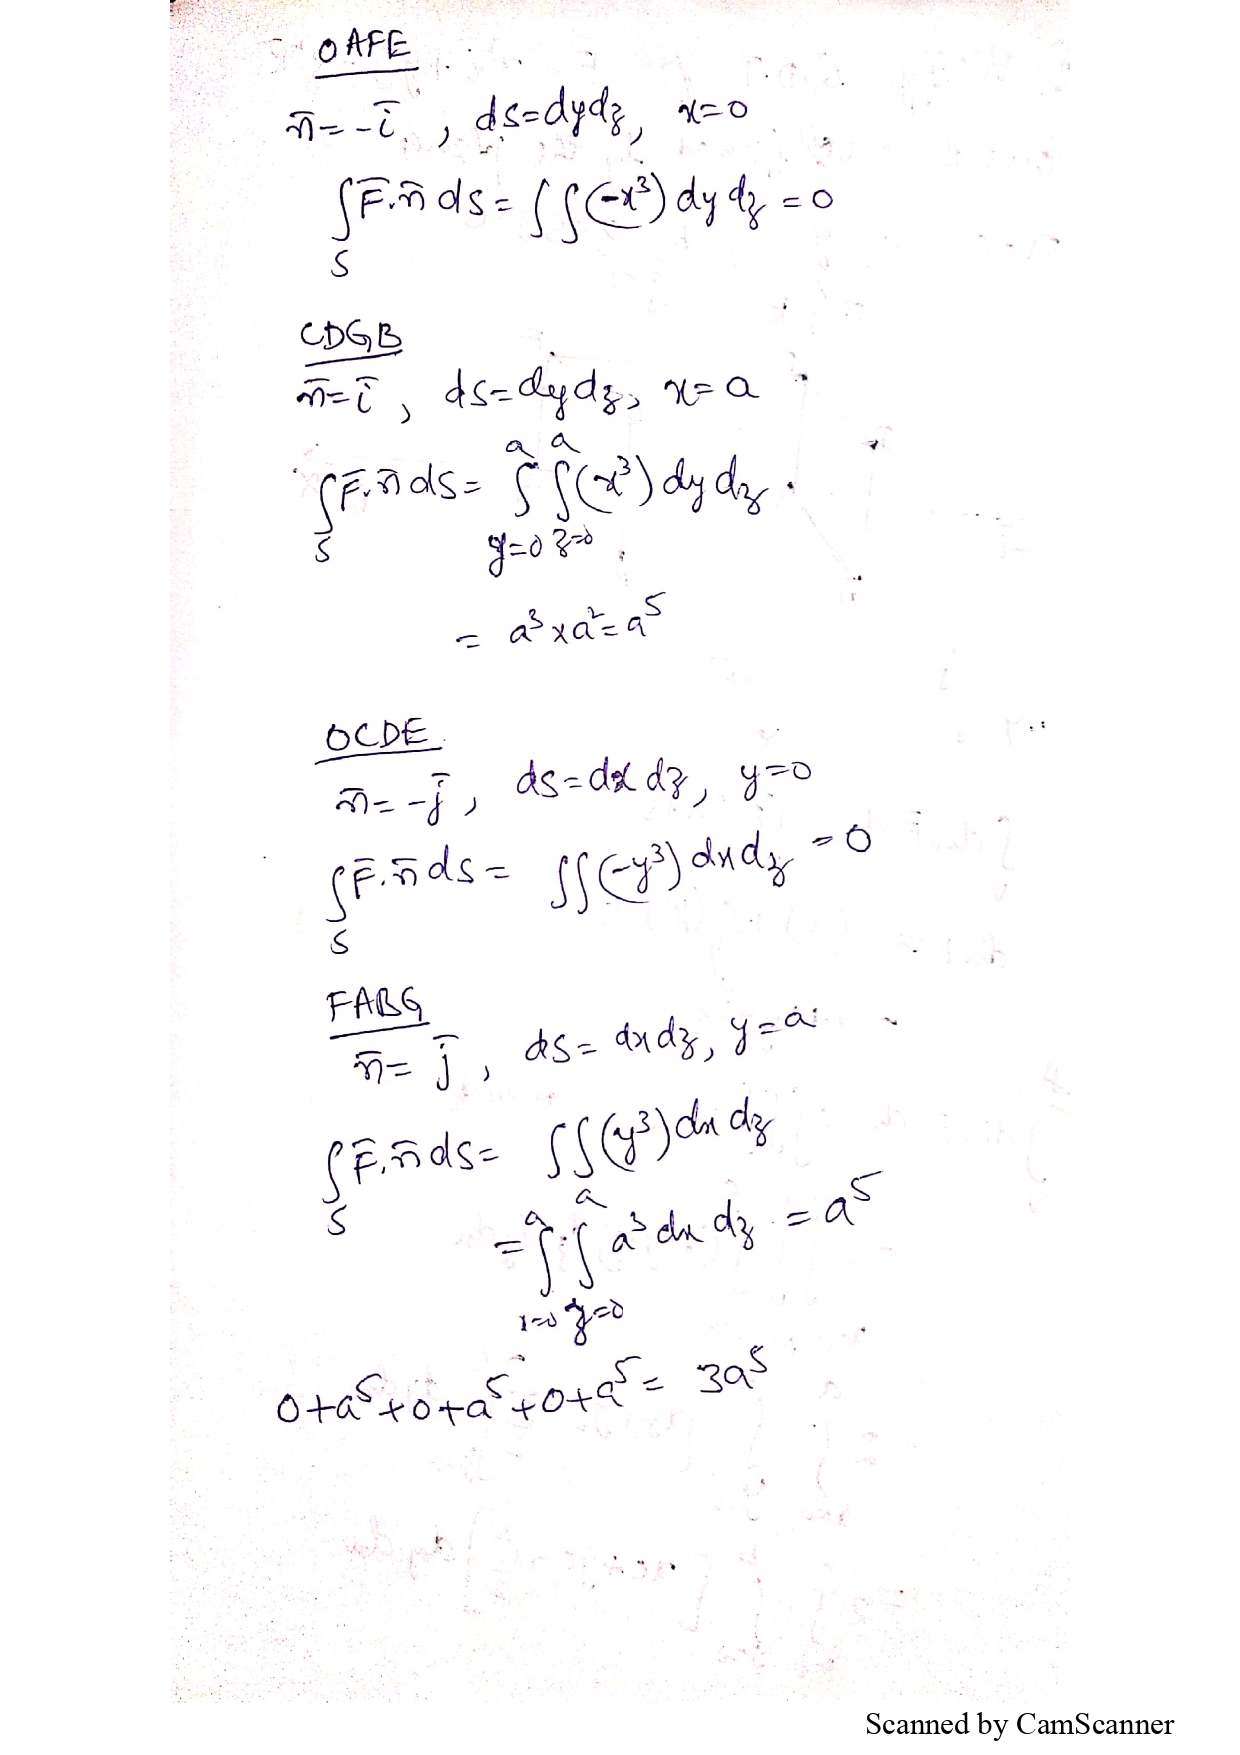 OAFE
n̄ = -ī, ds = dydz, x=0
∫F̄.n̄ ds = ∫∫(-x³) dy dz = 0
S
CDGB
n̄ = ī, ds = dydz, x = a
a a
∫F̄.n̄ ds = ∫∫(x³) dy dz.
S y=0 z=0
= a³ x a² = a⁵
OCDE
n̄ = -j̄, ds = dx dz, y=0
∫F̄.n̄ ds = ∫∫(-y³) dx dz = 0
S
FABG
n̄ = j̄, ds = dx dz, y = a
∫F̄.n̄ ds = ∫∫(y³) dx dz
S
a a
= ∫∫ a³ dx dz = a⁵
x=0 z=0
0+a⁵+0+a⁵+0+a⁵ = 3a⁵
Scanned by CamScanner